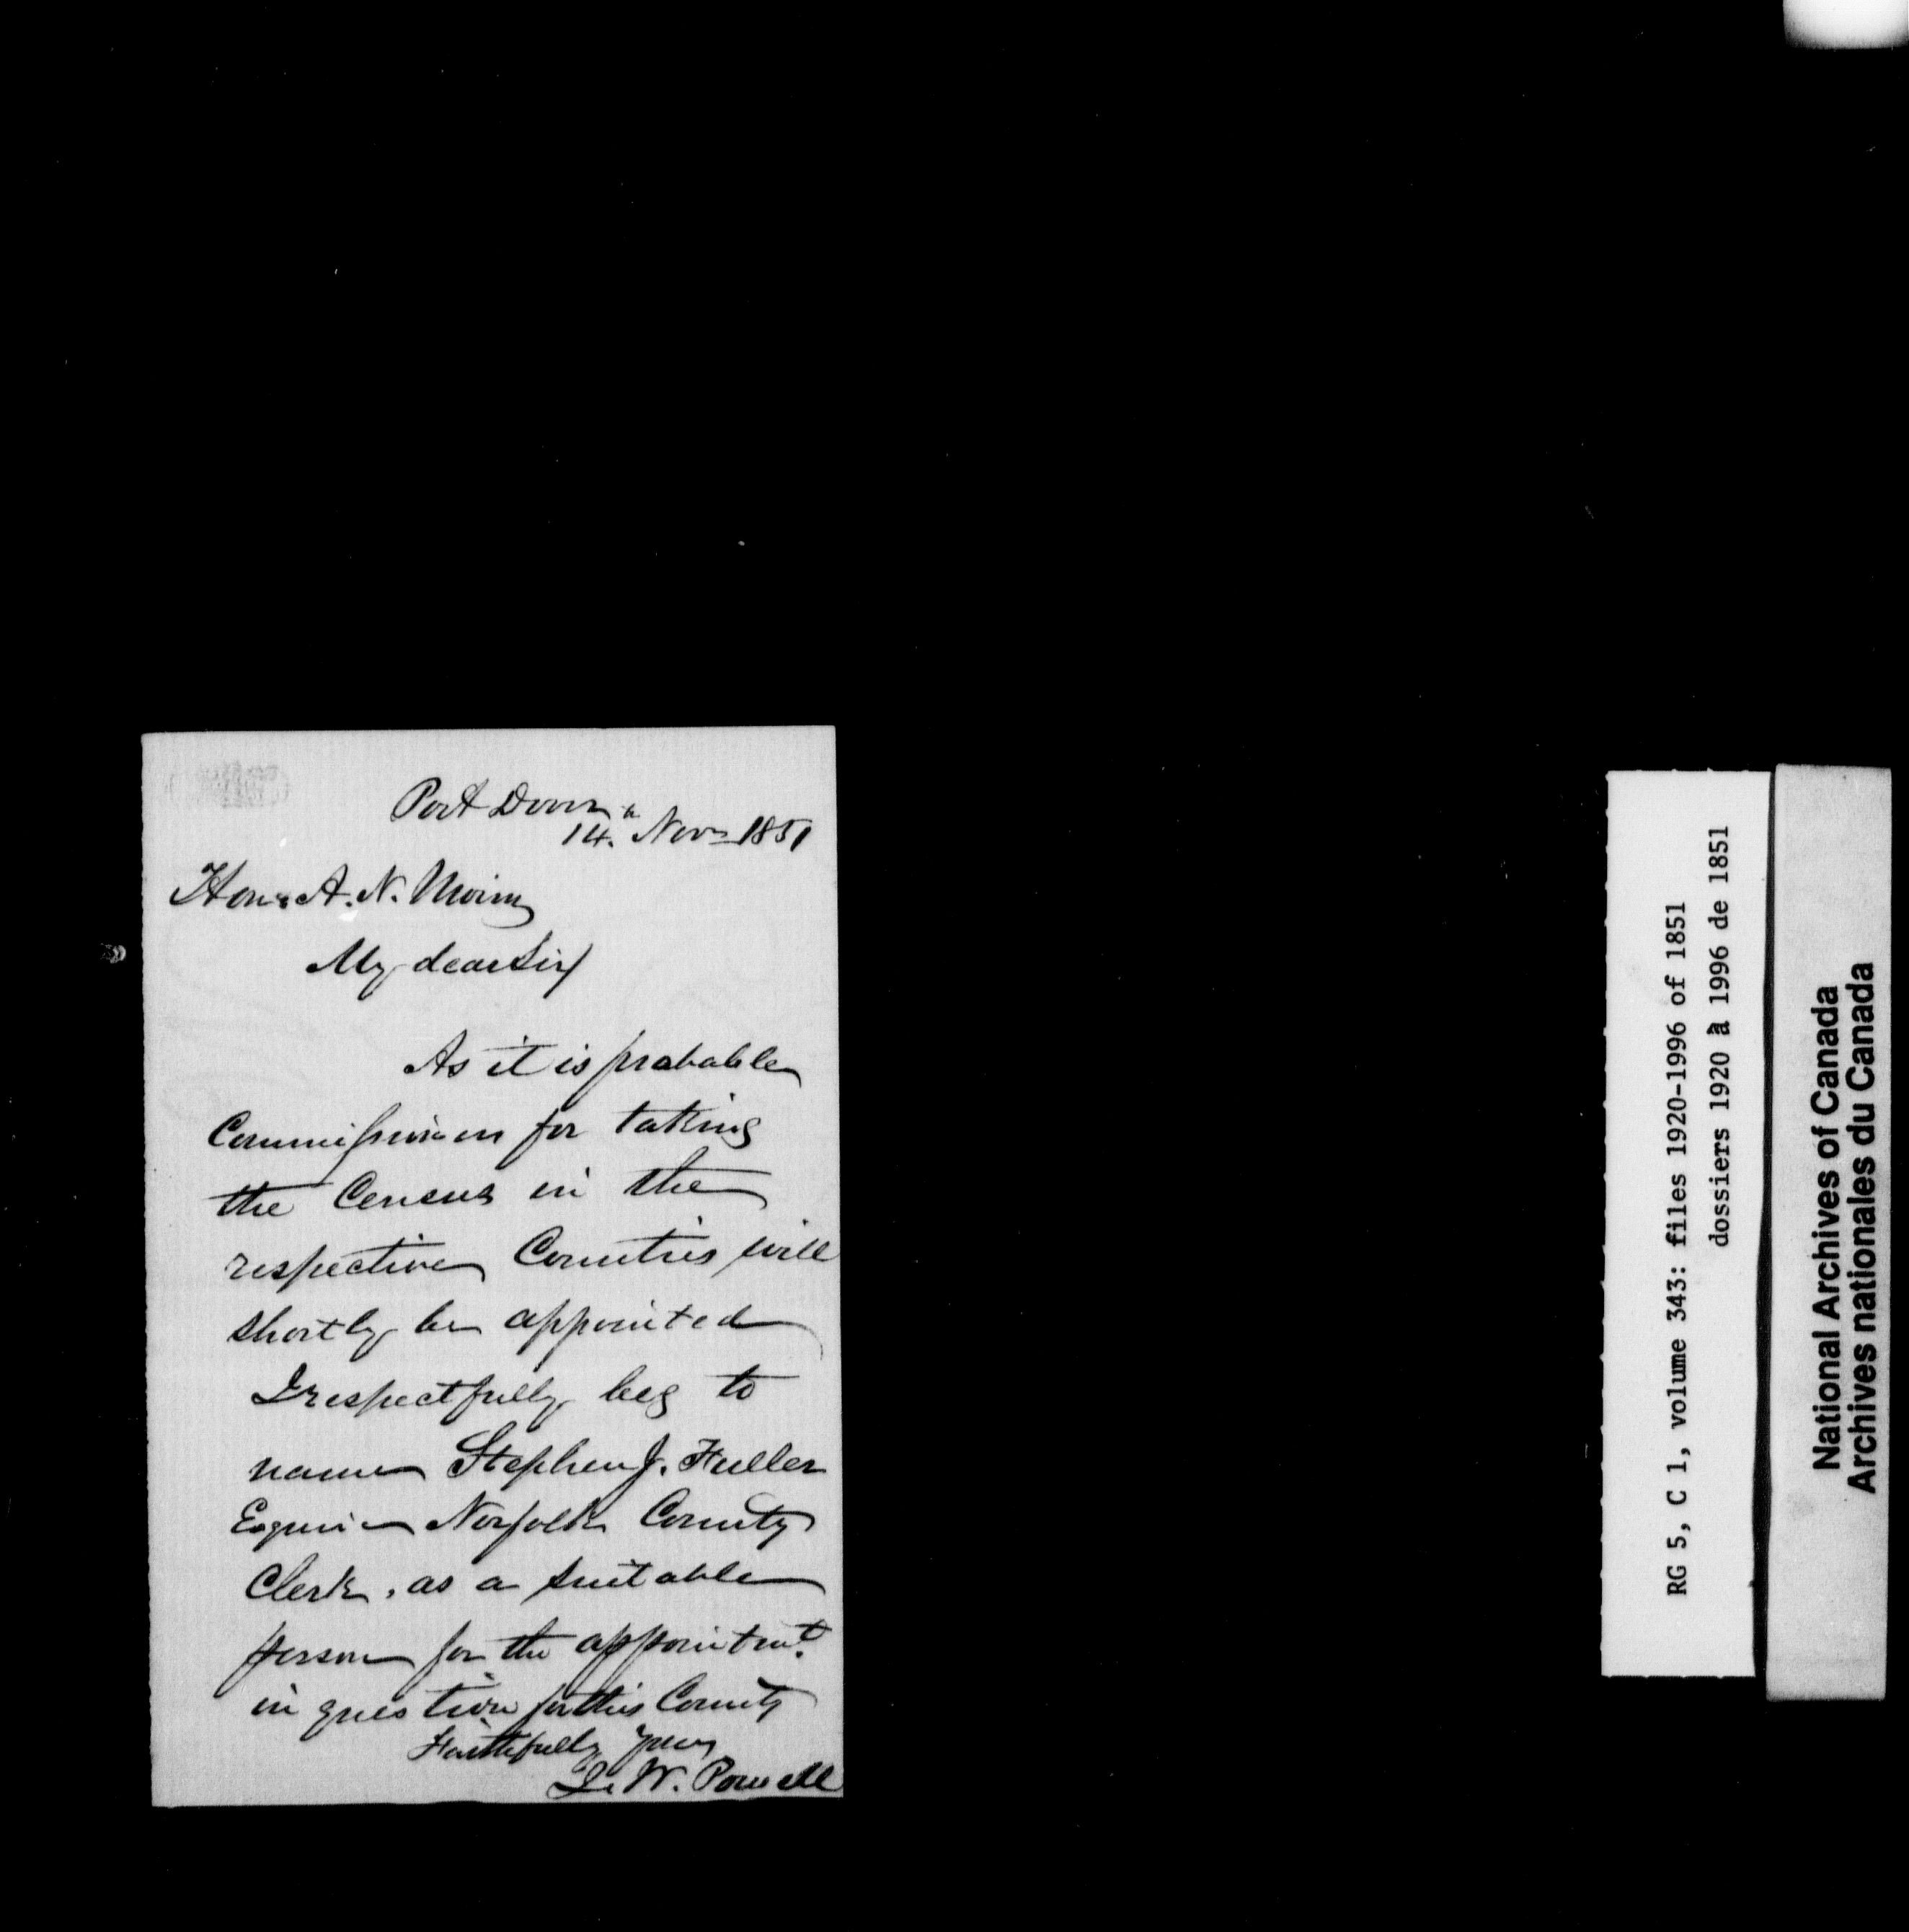 Port Dover
14th Novr 1851
Honl A. N. Morin
My dear Sir/
As it is probable
Commissioners for taking
the Census in the
respective Counties will
shortly be appointed
I respectfully beg to
name Stephen J. Fuller
Esquire Norfolk County
Clerk, as a suitable
person for the appointmt.
in question for this County
Faithfully yours
I. W. Powell
RG 5, C 1, volume 343: files 1920-1996 of 1851
dossiers 1920 à 1996 de 1851
National Archives of Canada
Archives nationales du Canada